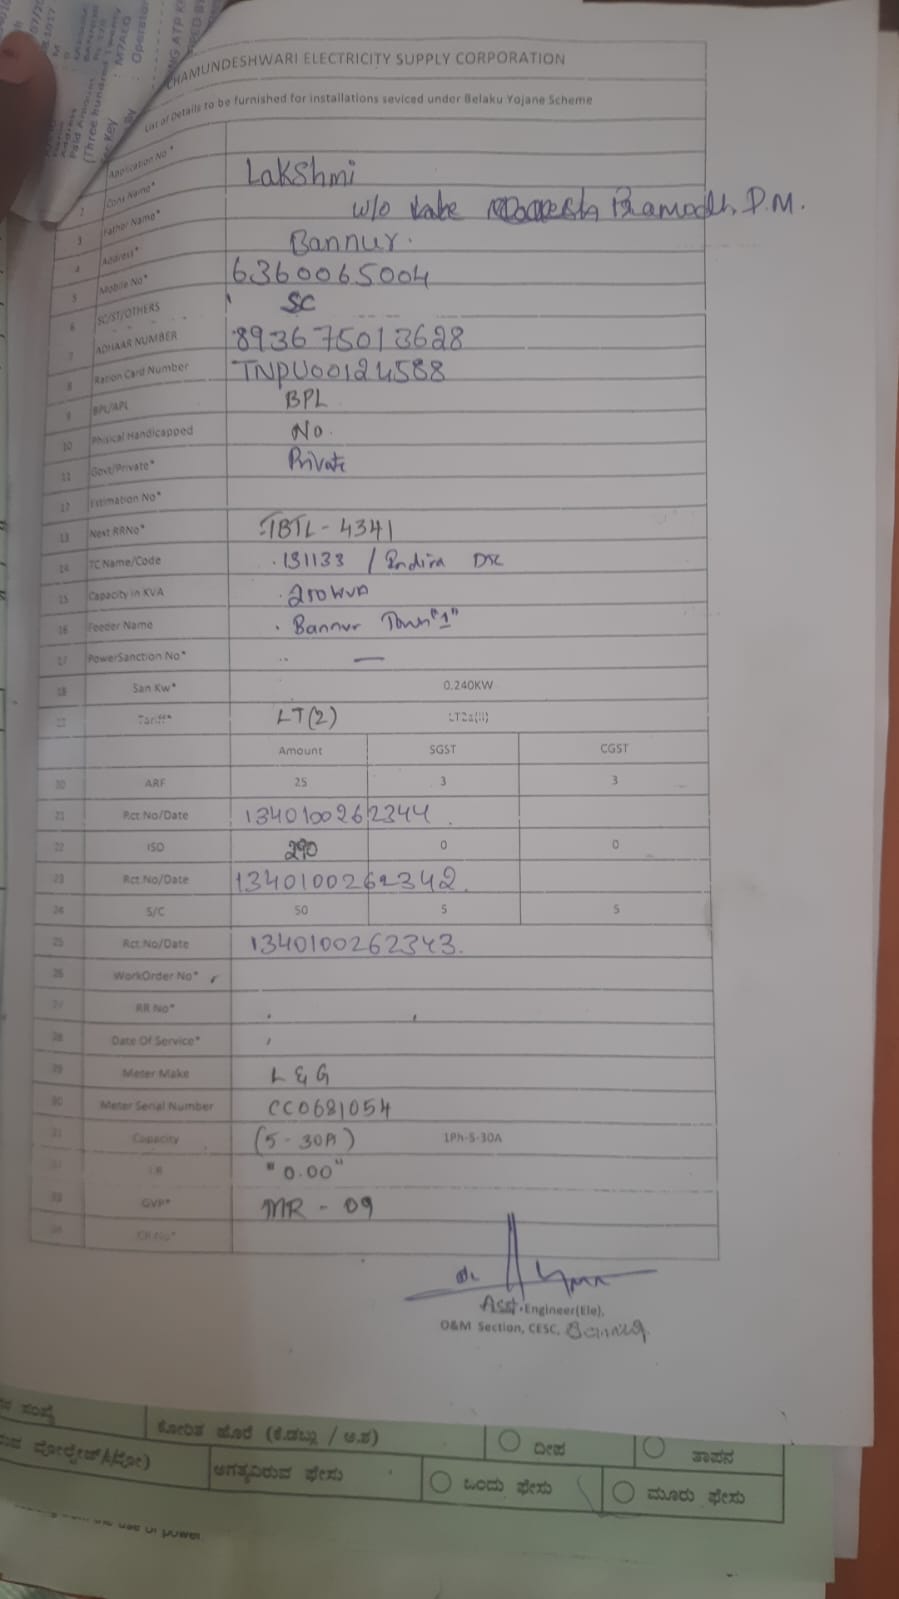 CHAMUNDESHWARI ELECTRICITY SUPPLY CORPORATION
List of Details to be furnished for installations seviced under Belaku Yojane Scheme
Application No*
2 Cons Name* Lakshmi
3 Father Name* W/o Pramodh. P.M.
4 Address* Bannur.
5 Mobile No* 6360065004
6 SC/ST/OTHERS SC
7 ADHAAR NUMBER 893675013628
8 Ration Card Number TNPU00124588
9 BPL/APL BPL
10 Phisical Handicapped No.
11 Govt/Private* Private
12 Estimation No*
13 Next RRNo* TBTL-4341
14 TC Name/Code 131133 / Indira
15 Capacity in KVA 250 KVA
16 Feeder Name Bannur Town "1"
17 PowerSanction No* —
18 San Kw* 0.240KW
Tariff* LT(2)
Amount SGST CGST
20 ARF 25 3 3
21 Rct.No/Date 1340100262344.
22 ISD 290 0 0
23 Rct.No/Date 1340100262342.
24 S/C 50 5 5
25 Rct.No/Date 1340100262343.
26 WorkOrder No*
27 RR No*
28 Date Of Service*
29 Meter Make L&G
30 Meter Serial Number CC0681054
31 Capacity (5-30A) 1Ph-5-30A
"0.00"
33 GVP* MR-09
Asst. Engineer(Ele),
O&M Section, CESC,
ಕೋರಿತ ಹೊರೆ (ಕಿ.ಡಬ್ಲ್ಯೂ / ಅ.ಶ) ದೀಪ ತಾಪನ
ಅಗತ್ಯವಿರುವ ಫೇಸು ಒಂದು ಫೇಸು ಮೂರು ಫೇಸು
use of power